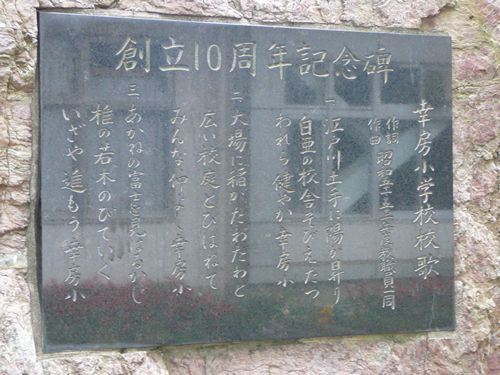 創立10周年記念碑
幸房小学校校歌
作詞
作曲 昭和五十五年度教職員一同
一 江戸川土手に陽が昇り
白亜の校舎そびえたつ
われら健やか幸房小
二 大場に稲がたわたわと
広い校庭とびはねて
みんな仲よく幸房小
三 あかねの富士を見はるかし
椎の若木のびていく
いざや進もう幸房小